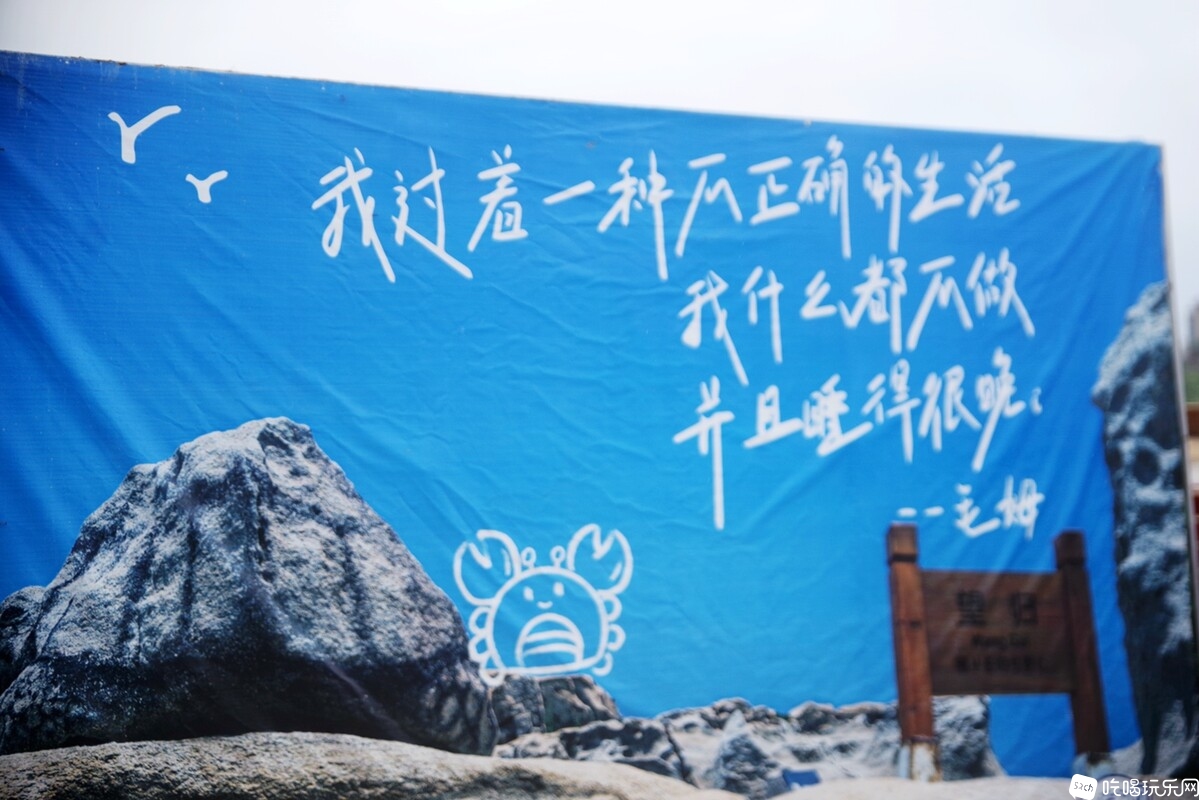 我过着一种不正确的生活
我什么都不做
并且睡得很晚。
--毛姆
望归
Wang Gui
吃喝玩乐网